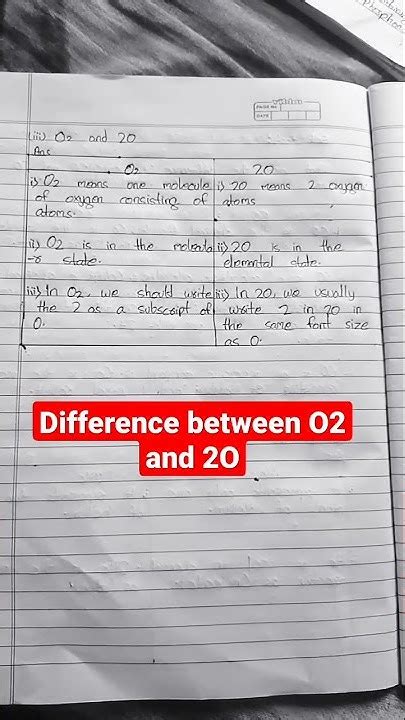 PAGE No.
DATE
(iii) O2 and 2O
Ans
O2
2O
i) O2 means one molecule
of oxygen consisting of
atoms.
i) 2O means 2 oxygen
atoms
ii) O2 is in the molecula
-r state.
ii) 2O is in the
elemental state.
iii) In O2, we should write
the 2 as a subscript of
O.
iii) In 2O, we usually
write 2 in 2O in
the same font size
as O.
Difference between O2
and 2O